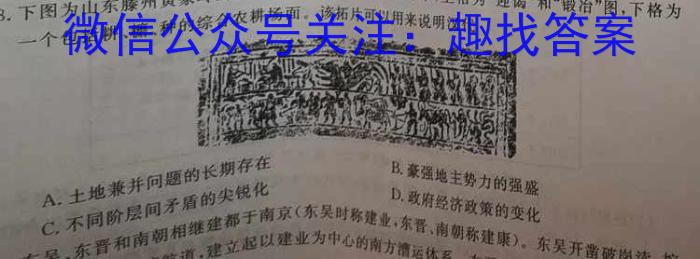 3. 下图为山东滕州黄家
和“锻冶”图,下格为
一个包括耕、 种的综合农耕场面。该拓片可以用来说明汉
微信公众号关注:趣找答案
A. 土地兼并问题的长期存在
B. 豪强地主势力的强盛
C. 不同阶层间矛盾的尖锐化
D. 政府经济政策的变化
东吴、东晋和南朝相继建都于南京(东吴时称建业,东晋、南朝称建康)。东吴开凿破岗渎,
道,建立起以建业为中心的南方漕运体系